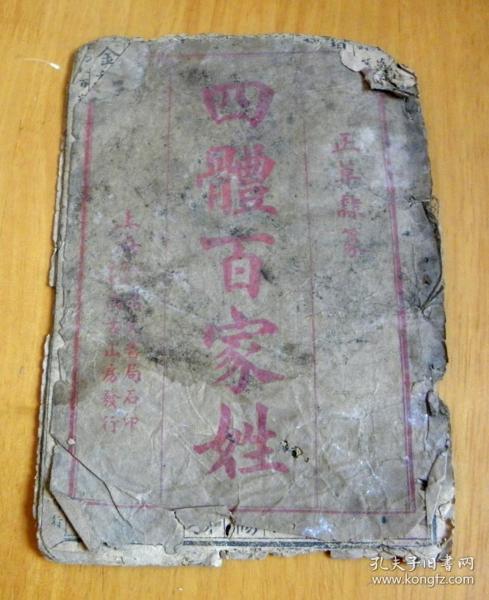 正草隸篆
四體百家姓
上海
書局石印
山房發行
金
孔夫子旧书网
www.kongfz.com